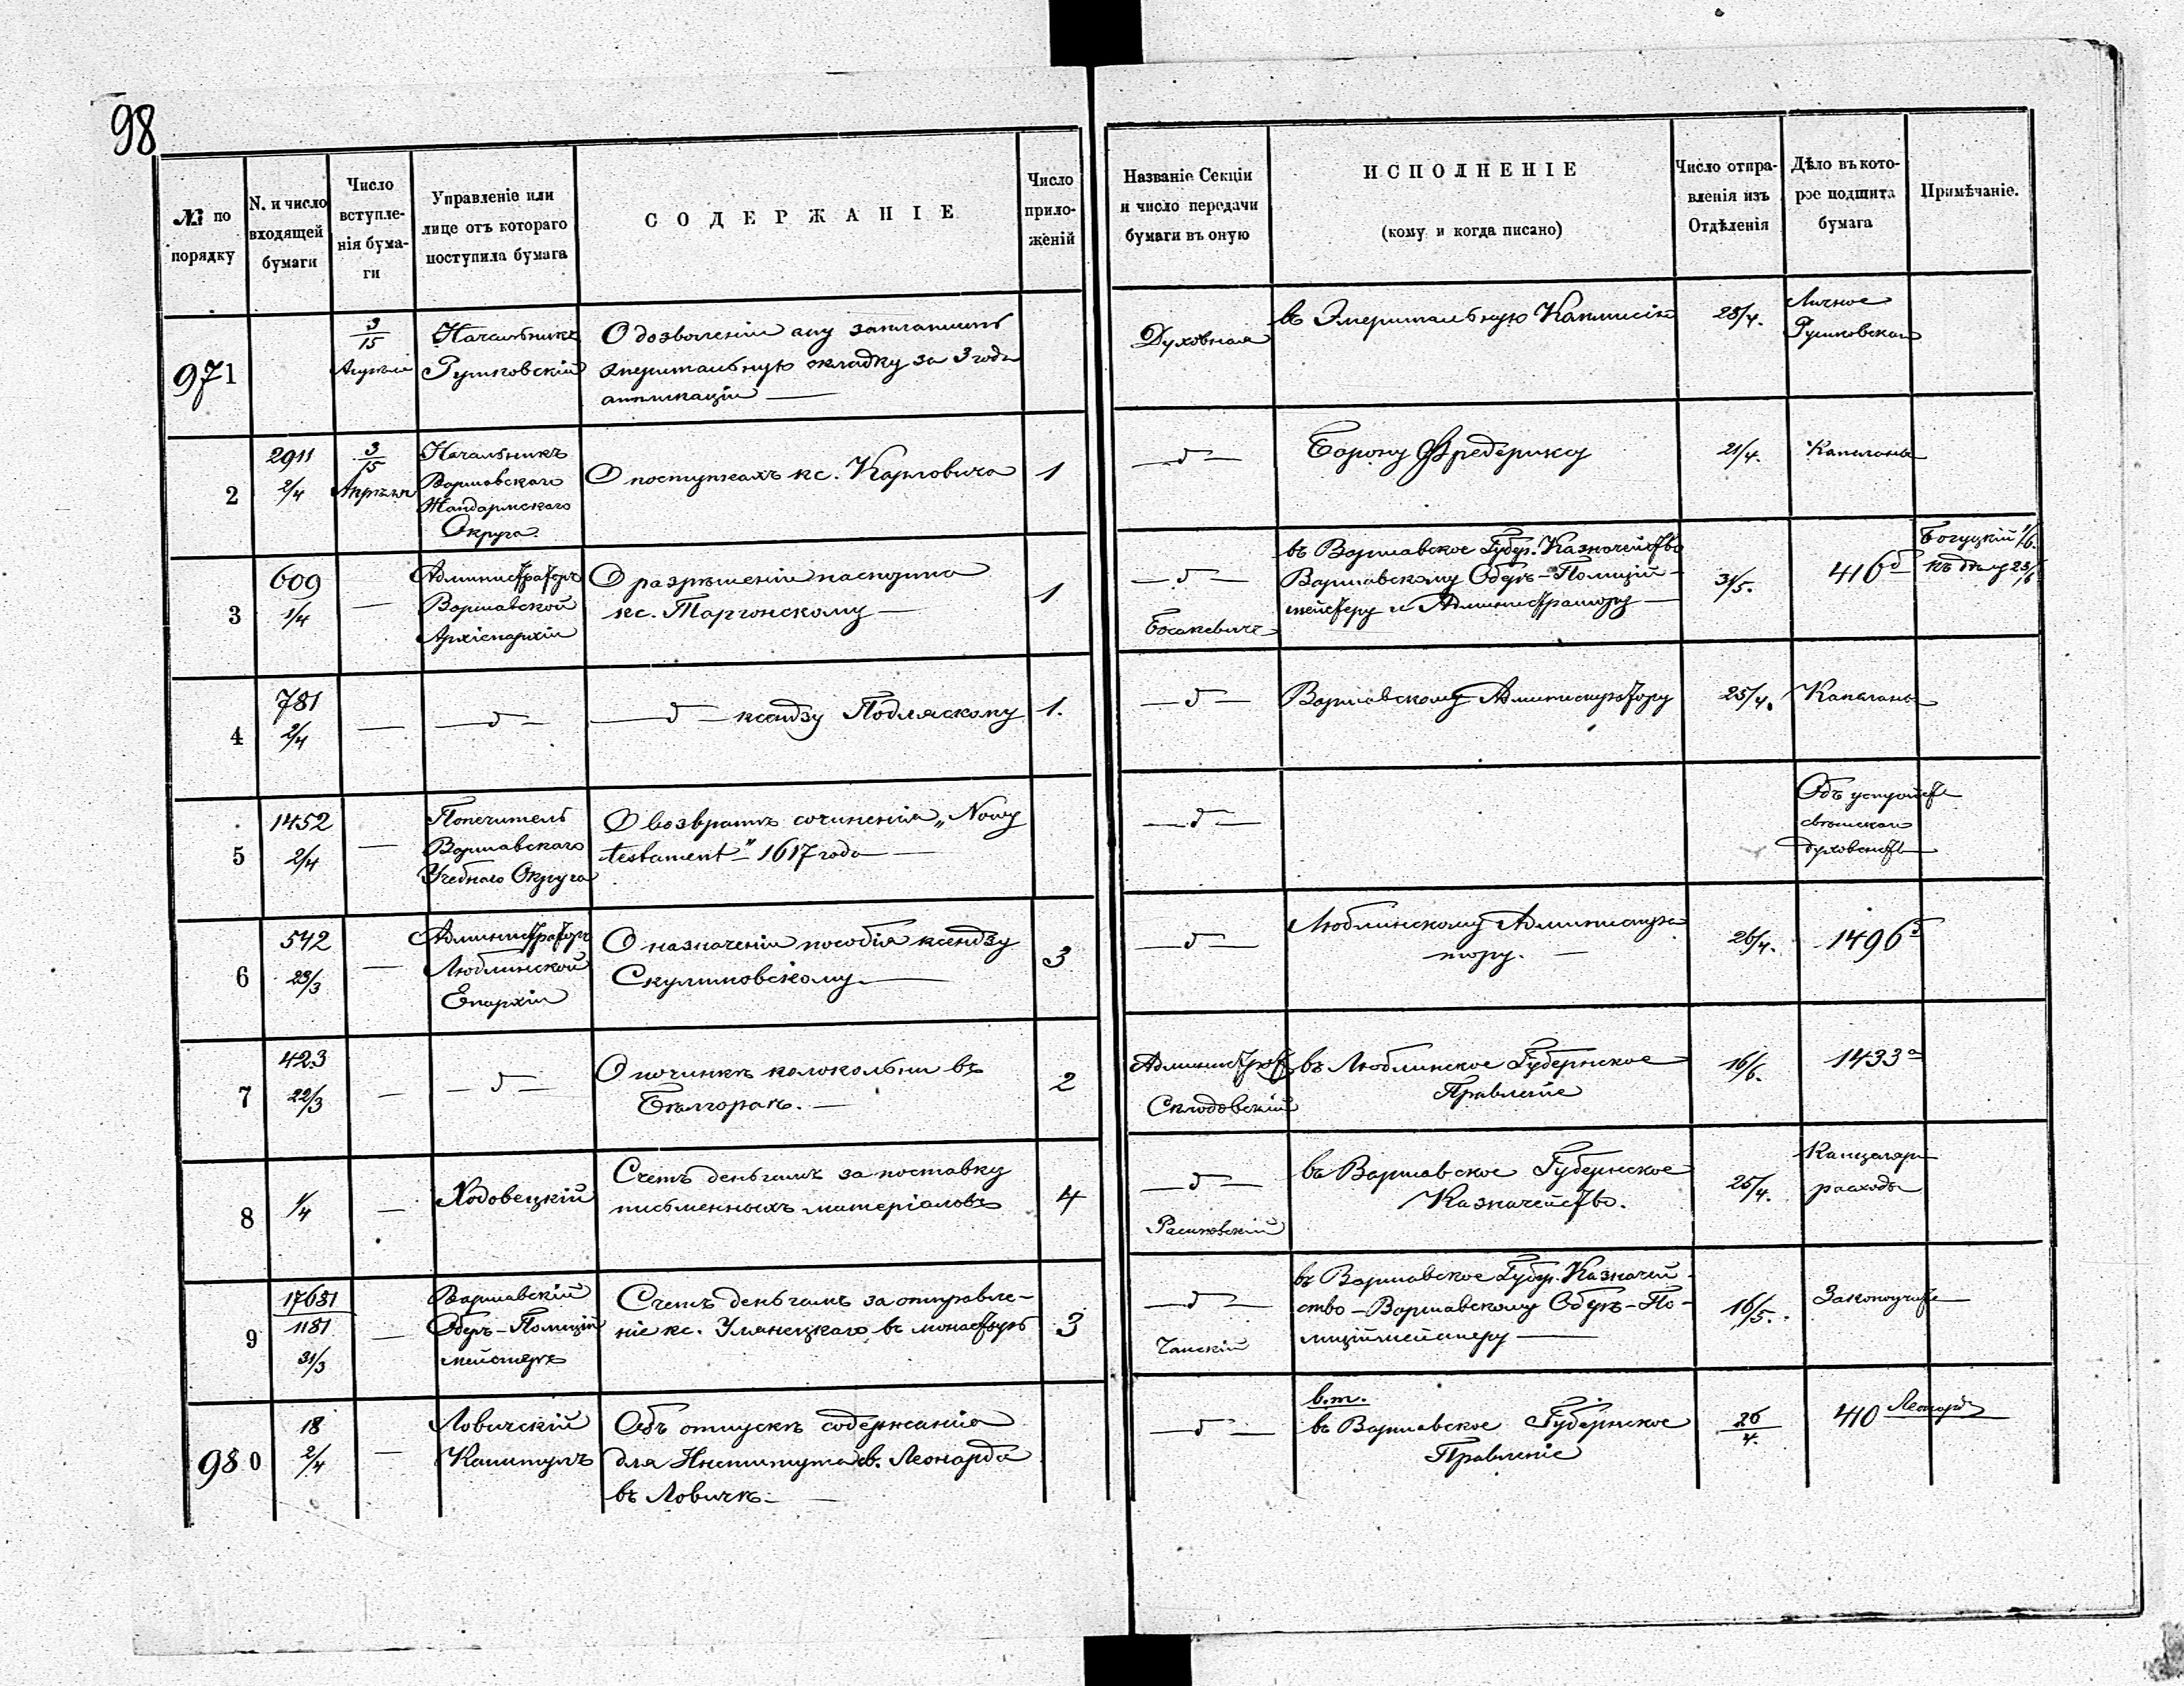 98
№ по порядку
N. и число входящей бумаги
Число вступле-нія бума-ги
Управленіе или лице отъ котораго поступила бумага
СОДЕРЖАНІЕ
Число прило-женій
Названіе Секціи и число передачи бумаги въ оную
ИСПОЛНЕНІЕ
(кому и когда писано)
Число отпра-вленія изъ Отдѣленія
Дѣло въ кото-рое подшита бумага
Примѣчаніе.
971
3/15
Апрѣля
Начальникъ
О дозволеніи ему заплатить
эмеритальную складку за 3 года
аппликаціи —
Духовная
въ Эмеритальную Коммисію
28/4.
Личное
2
2911
2/4
3/15
Апрѣля
Начальникъ
Варшавскаго
Жандармскаго
Округа.
О поступкахъ кс. Карловича
1
— д —
Барону Фредериксу
21/4.
Капеланы
3
609
1/4
—
Администраторъ
Варшавской
Архіепархіи
О разрѣшеніи паспорта
кс. Таргонскому —
1
— д —
въ Варшавское Губер. Казначейство
Варшавскому Оберъ-Полицій-
мейстеру и Администратору —
31/5.
416 д
Богуцкій 1/6.
къ дѣлу 23/6
4
781
2/4
—
— д —
— д — ксендзу Подляскому
1.
— д —
Варшавскому Администратору
25/4.
Капеланы
5
1452
2/4
—
Попечитель
Варшавскаго
Учебнаго Округа
О возвратѣ сочиненія „Nowy
testament" 1617 года —
— д —
Объ устройствѣ
свѣтскаго
духовенства
6
542
23/3
—
Администраторъ
Люблинской
Епархіи
О назначеніи пособія ксендзу
Скулимовскому —
3
— д —
Люблинскому Администра
тору. —
26/4.
1496 б
7
423
22/3
—
— д —
О починкѣ колокольни въ
Бѣлгораѣ. —
2
Администрат.
Склодовскій
въ Люблинское Губернское
Правленіе
16/6.
1433 а
8
1/4
—
Ходовецкій
Счетъ деньгамъ за поставку
письменныхъ матеріаловъ
4
— д —
въ Варшавское Губернское
Казначейство.
25/4.
Канцеляр
расходы
9
17681
1181
31/3
—
Варшавскій
Оберъ-Полицій
мейстеръ
Счетъ деньгамъ за отправле-
ніе кс. Улянецкаго въ монастырь
3
— д —
Чапскій
въ Варшавское Губер. Казначей
ство — Варшавскому Оберъ-По-
лиціймейстеру —
16/5.
Законоучит.
980
18
2/4
—
Ловичскій
Капитулъ
Объ отпускѣ содержанія
для Института св. Леонарда
въ Ловичѣ —
— д —
в.т.
въ Варшавское Губернское
Правленіе
26/4.
410 Леонарда